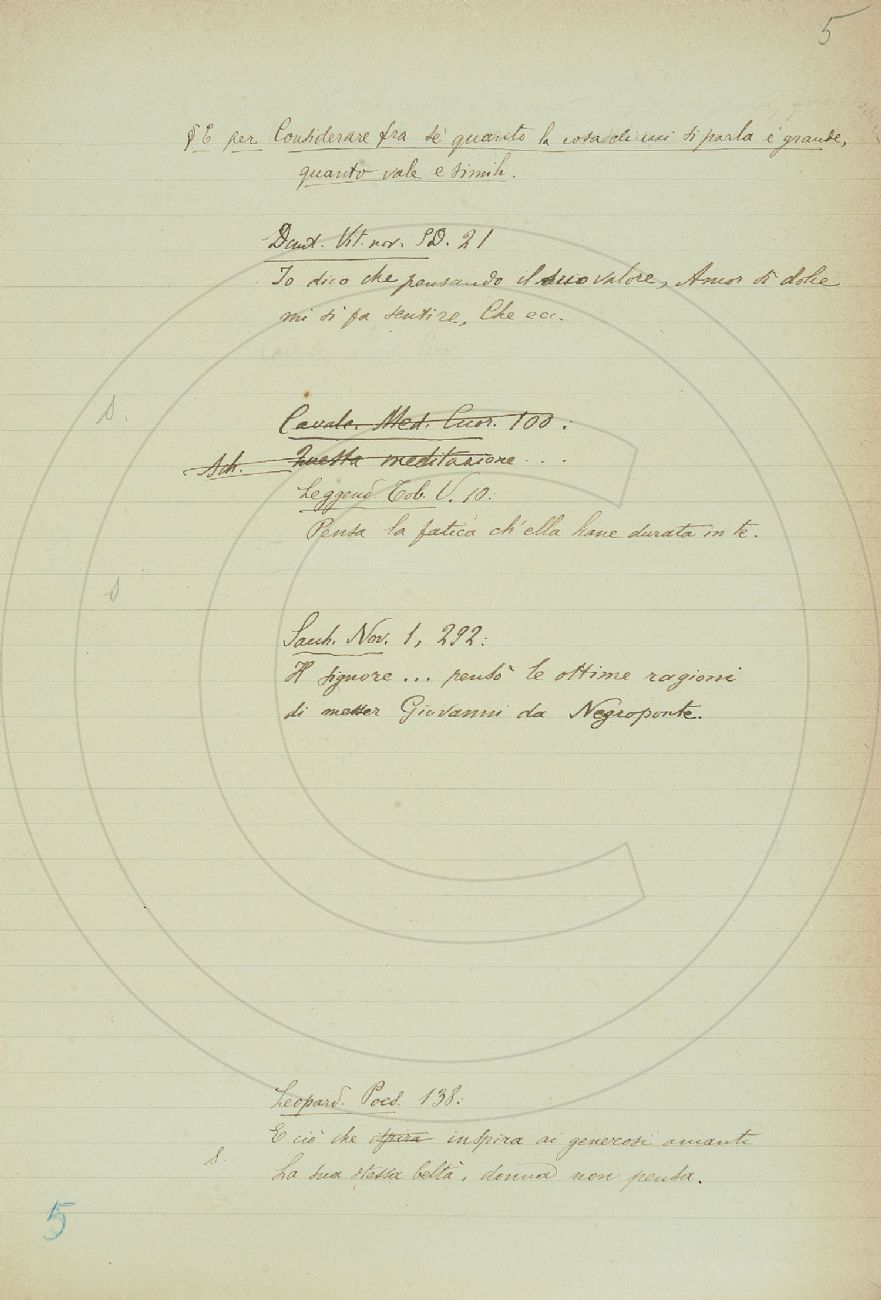 5
§ E per Considerare fra sè quanto la cosa di cui si parla è grande,
quanto vale e simili.
Dant. Vit. nov. SD. 21
Io dico che pensando il suo valore, Amor sì dolce
mi si fa sentire, Che ecc.
S.
Cavalc. Med. Cuor. 100:
Sch. Questa meditazione ...
Leggend. Tob. V. 10:
Pensa la fatica ch'ella hane durata in te.
S
Sacch. Nov. 1, 292:
Il signore ... pensò le ottime ragioni
di messer Giovanni da Negroponte.
Leopard. Poes. 138:
E ciò che spira inspira ai generosi amanti
S.
La sua stessa beltà, donna non pensa.
5